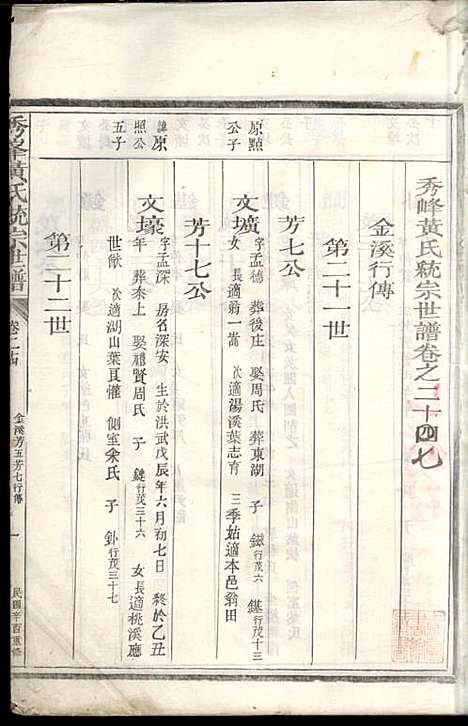 秀峰黄氏統宗世譜卷之二十四七
金溪行傳
第二十一世
原點公子
芳七公
文壙 字孟德 葬後庄 娶周氏 葬東湖 子 行茂六 行茂十三
女 長適翁一嵩 次適湯溪葉志育 三季姑適本邑翁田
諱原照公五子
芳十七公
文壕 字孟深 房名深安 生於洪武戊辰年六月初七日 終於乙丑
年 葬泰上 娶禮賢周氏 子 行茂三十六 女長適桃溪應
世猷 次適湖山葉良懽 側室朱氏 子 釙行茂三十七
第二十二世
秀峰黃氏統宗世譜
卷二十四
金溪芳五芳七行傳
一
民國辛酉重修